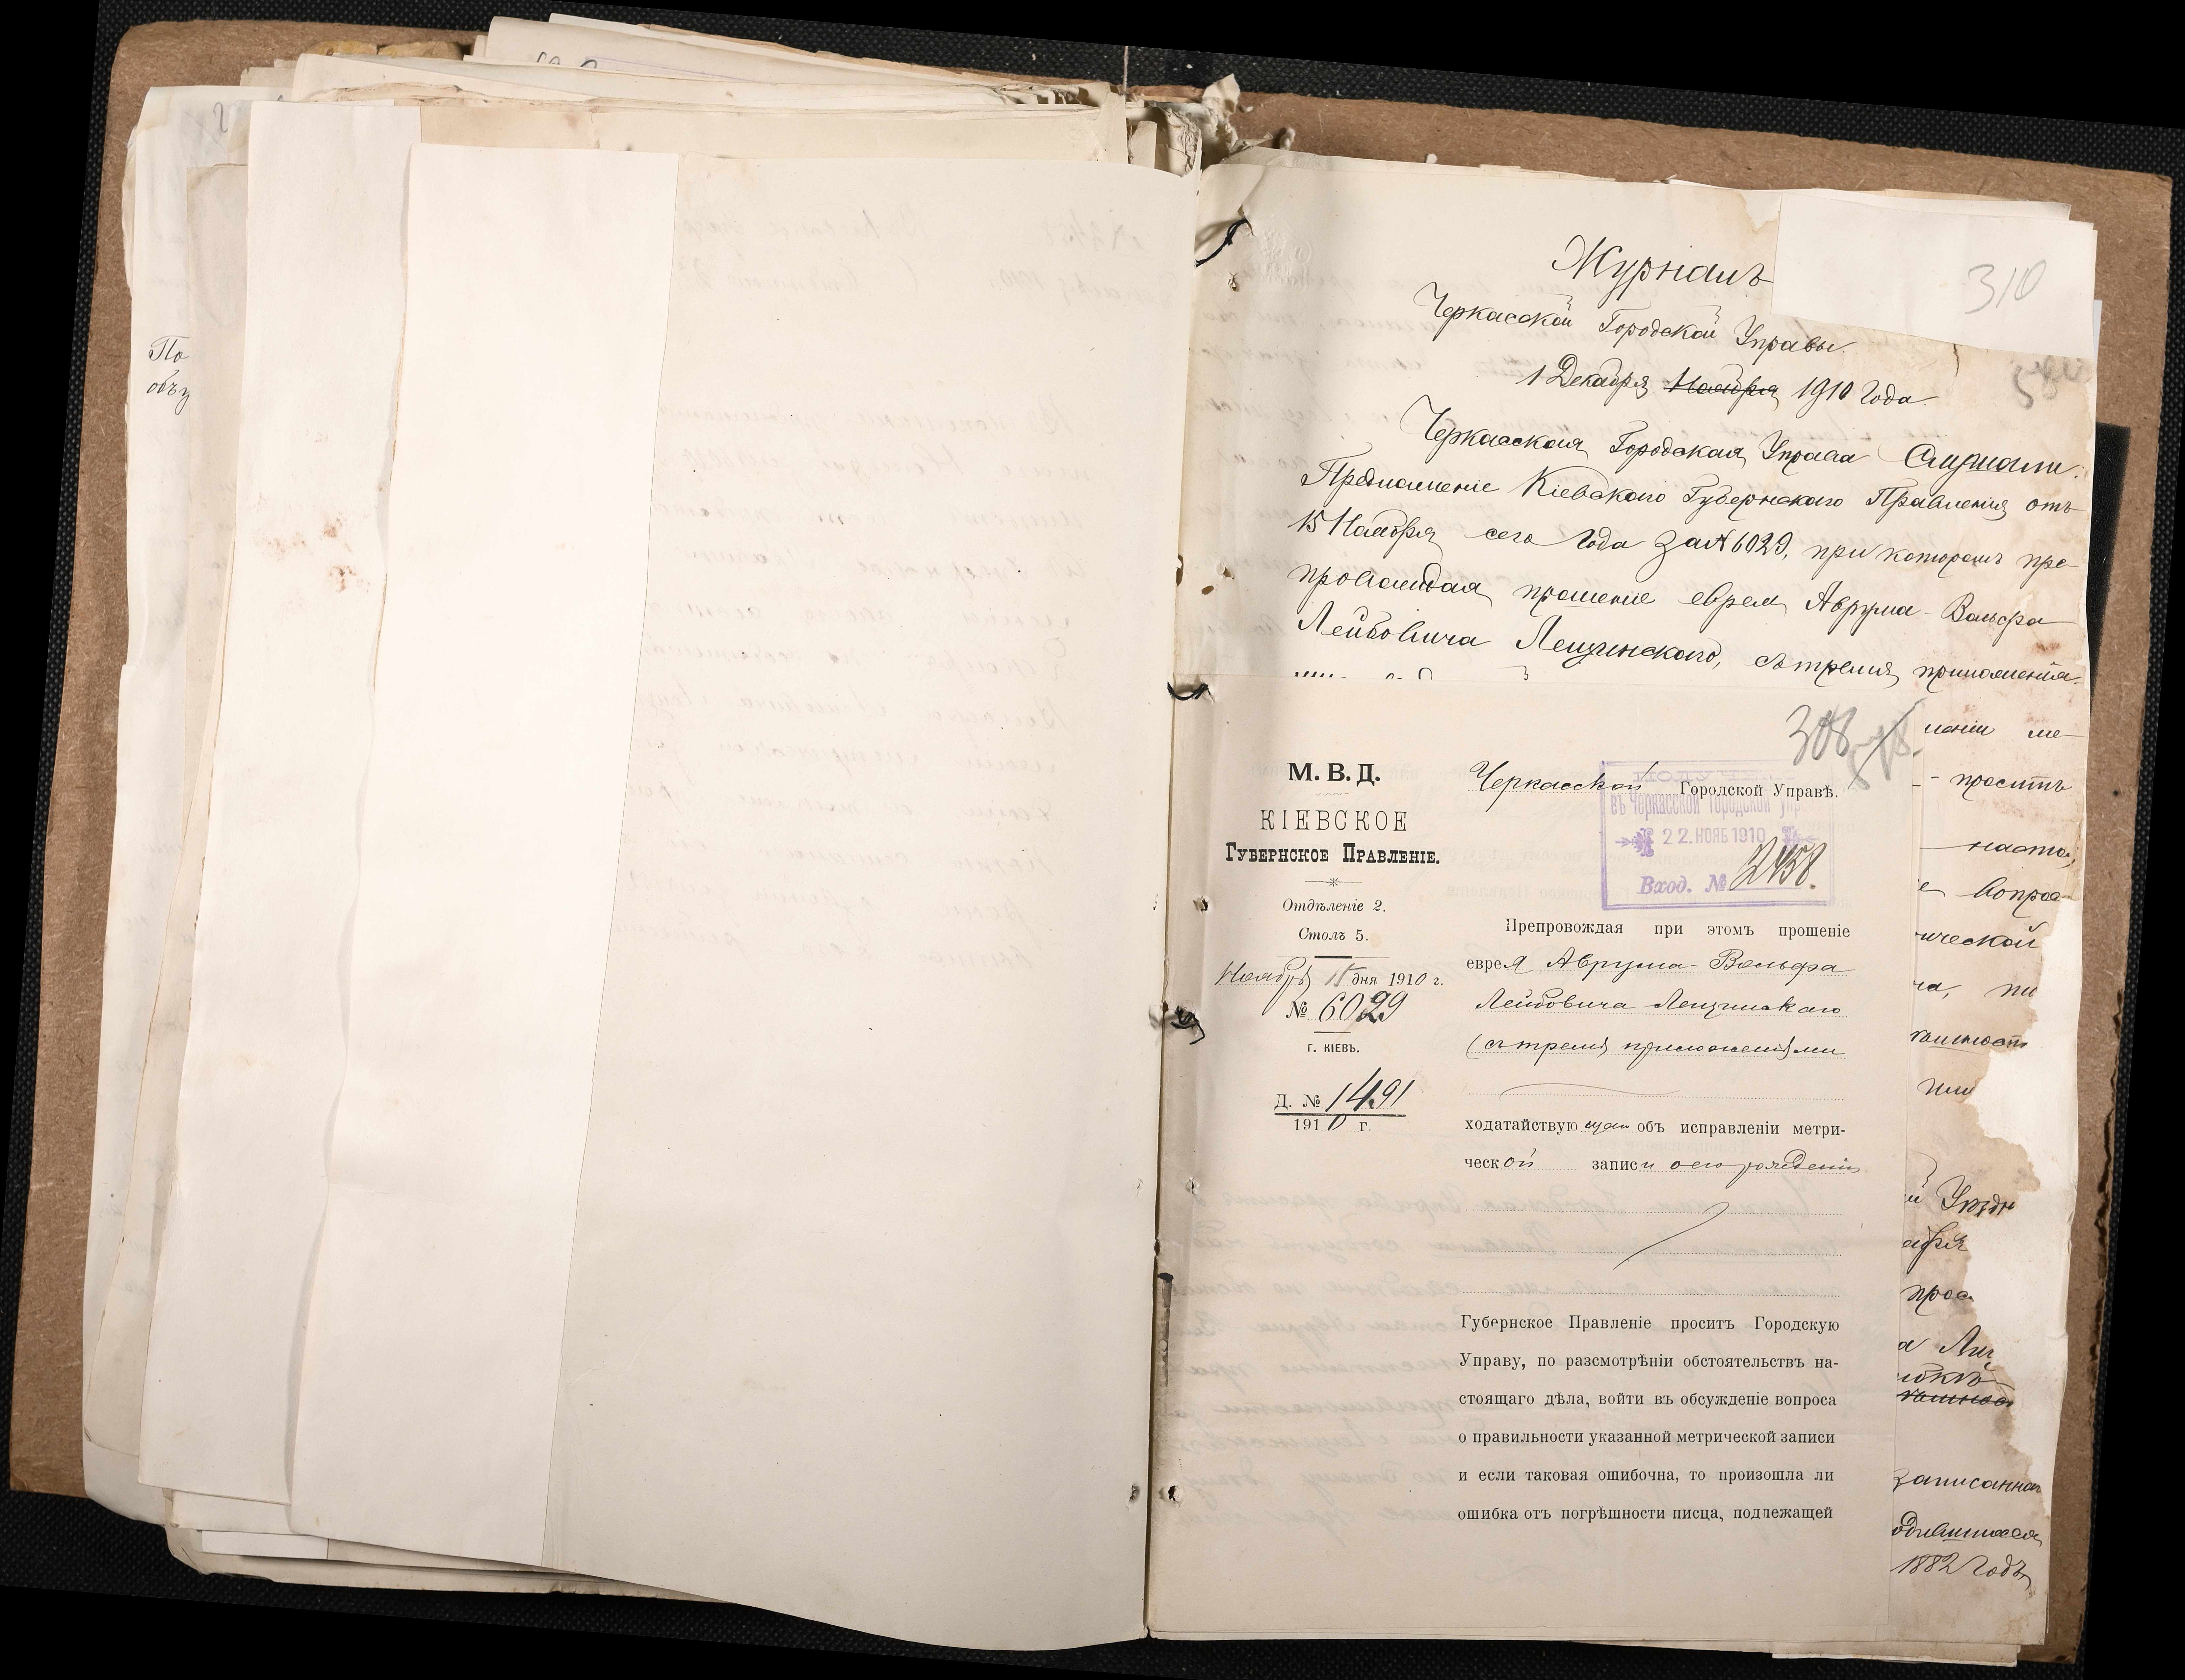 По
объя
310
Журналъ
Черкасской Городской Управы
1 Декабря Ноября 1910 года
Черкасская Городская Управа Слушали:
Предложеніе Кіевскаго Губернскаго Правленія отъ
15 Ноября сего года за № 6029, при которомъ пре-
провождая прошеніе еврея Аврума-Вольфа
Лейбовича Лещинскаго, съ тремя приложенія-
308
М. В. Д.
КІЕВСКОЕ
ГУБЕРНСКОЕ ПРАВЛЕНІЕ.
Отдѣленіе 2.
Столъ 5.
Ноября 15 дня 1910 г.
№ 6029
Г. КІЕВЪ.
Д. № 1491
1910 г.
Черкасской Городской Управѣ.
въ Черкасской Городской Упр
22. НОЯБ 1910
Вход. № 2458.
Препровождая при этомъ прошеніе
еврея Аврума-Вольфа
Лейбовича Лещинскаго
(съ тремя приложеніями
ходатайствующаго объ исправленіи метри-
ческой записи о его рожденіи
Губернское Правленіе проситъ Городскую
Управу, по разсмотрѣніи обстоятельствъ на-
стоящаго дѣла, войти въ обсужденіе вопроса
о правильности указанной метрической записи
и если таковая ошибочна, то произошла ли
ошибка отъ погрѣшности писца, подлежащей
леніи ме-
проситъ
насто
е вопрос
ической
или
прос
записанная
одившаяся
1882 годъ